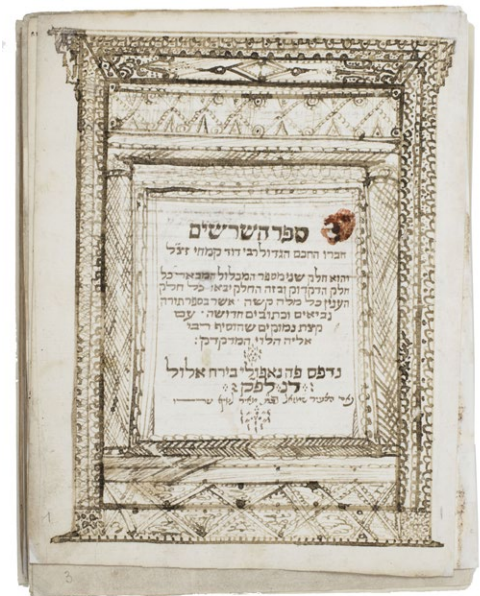 ספר השרשים
חברו החכם הגדול רבי דוד קמחי זצ״ל
והוא חלק שני מספר המכלול המבאר כל
חלק הדקדוק ובזה החלק יבאר כל חלק
הענין כל מלה קשה אשר בספר תורה
נביאים וכתובים חדושה עם
קצת נמוקים שהוסיף רבי
אליה הלוי המדקדק:
נדפס פה נאפולי בירח אלול
ר״נ לפ״ק
3